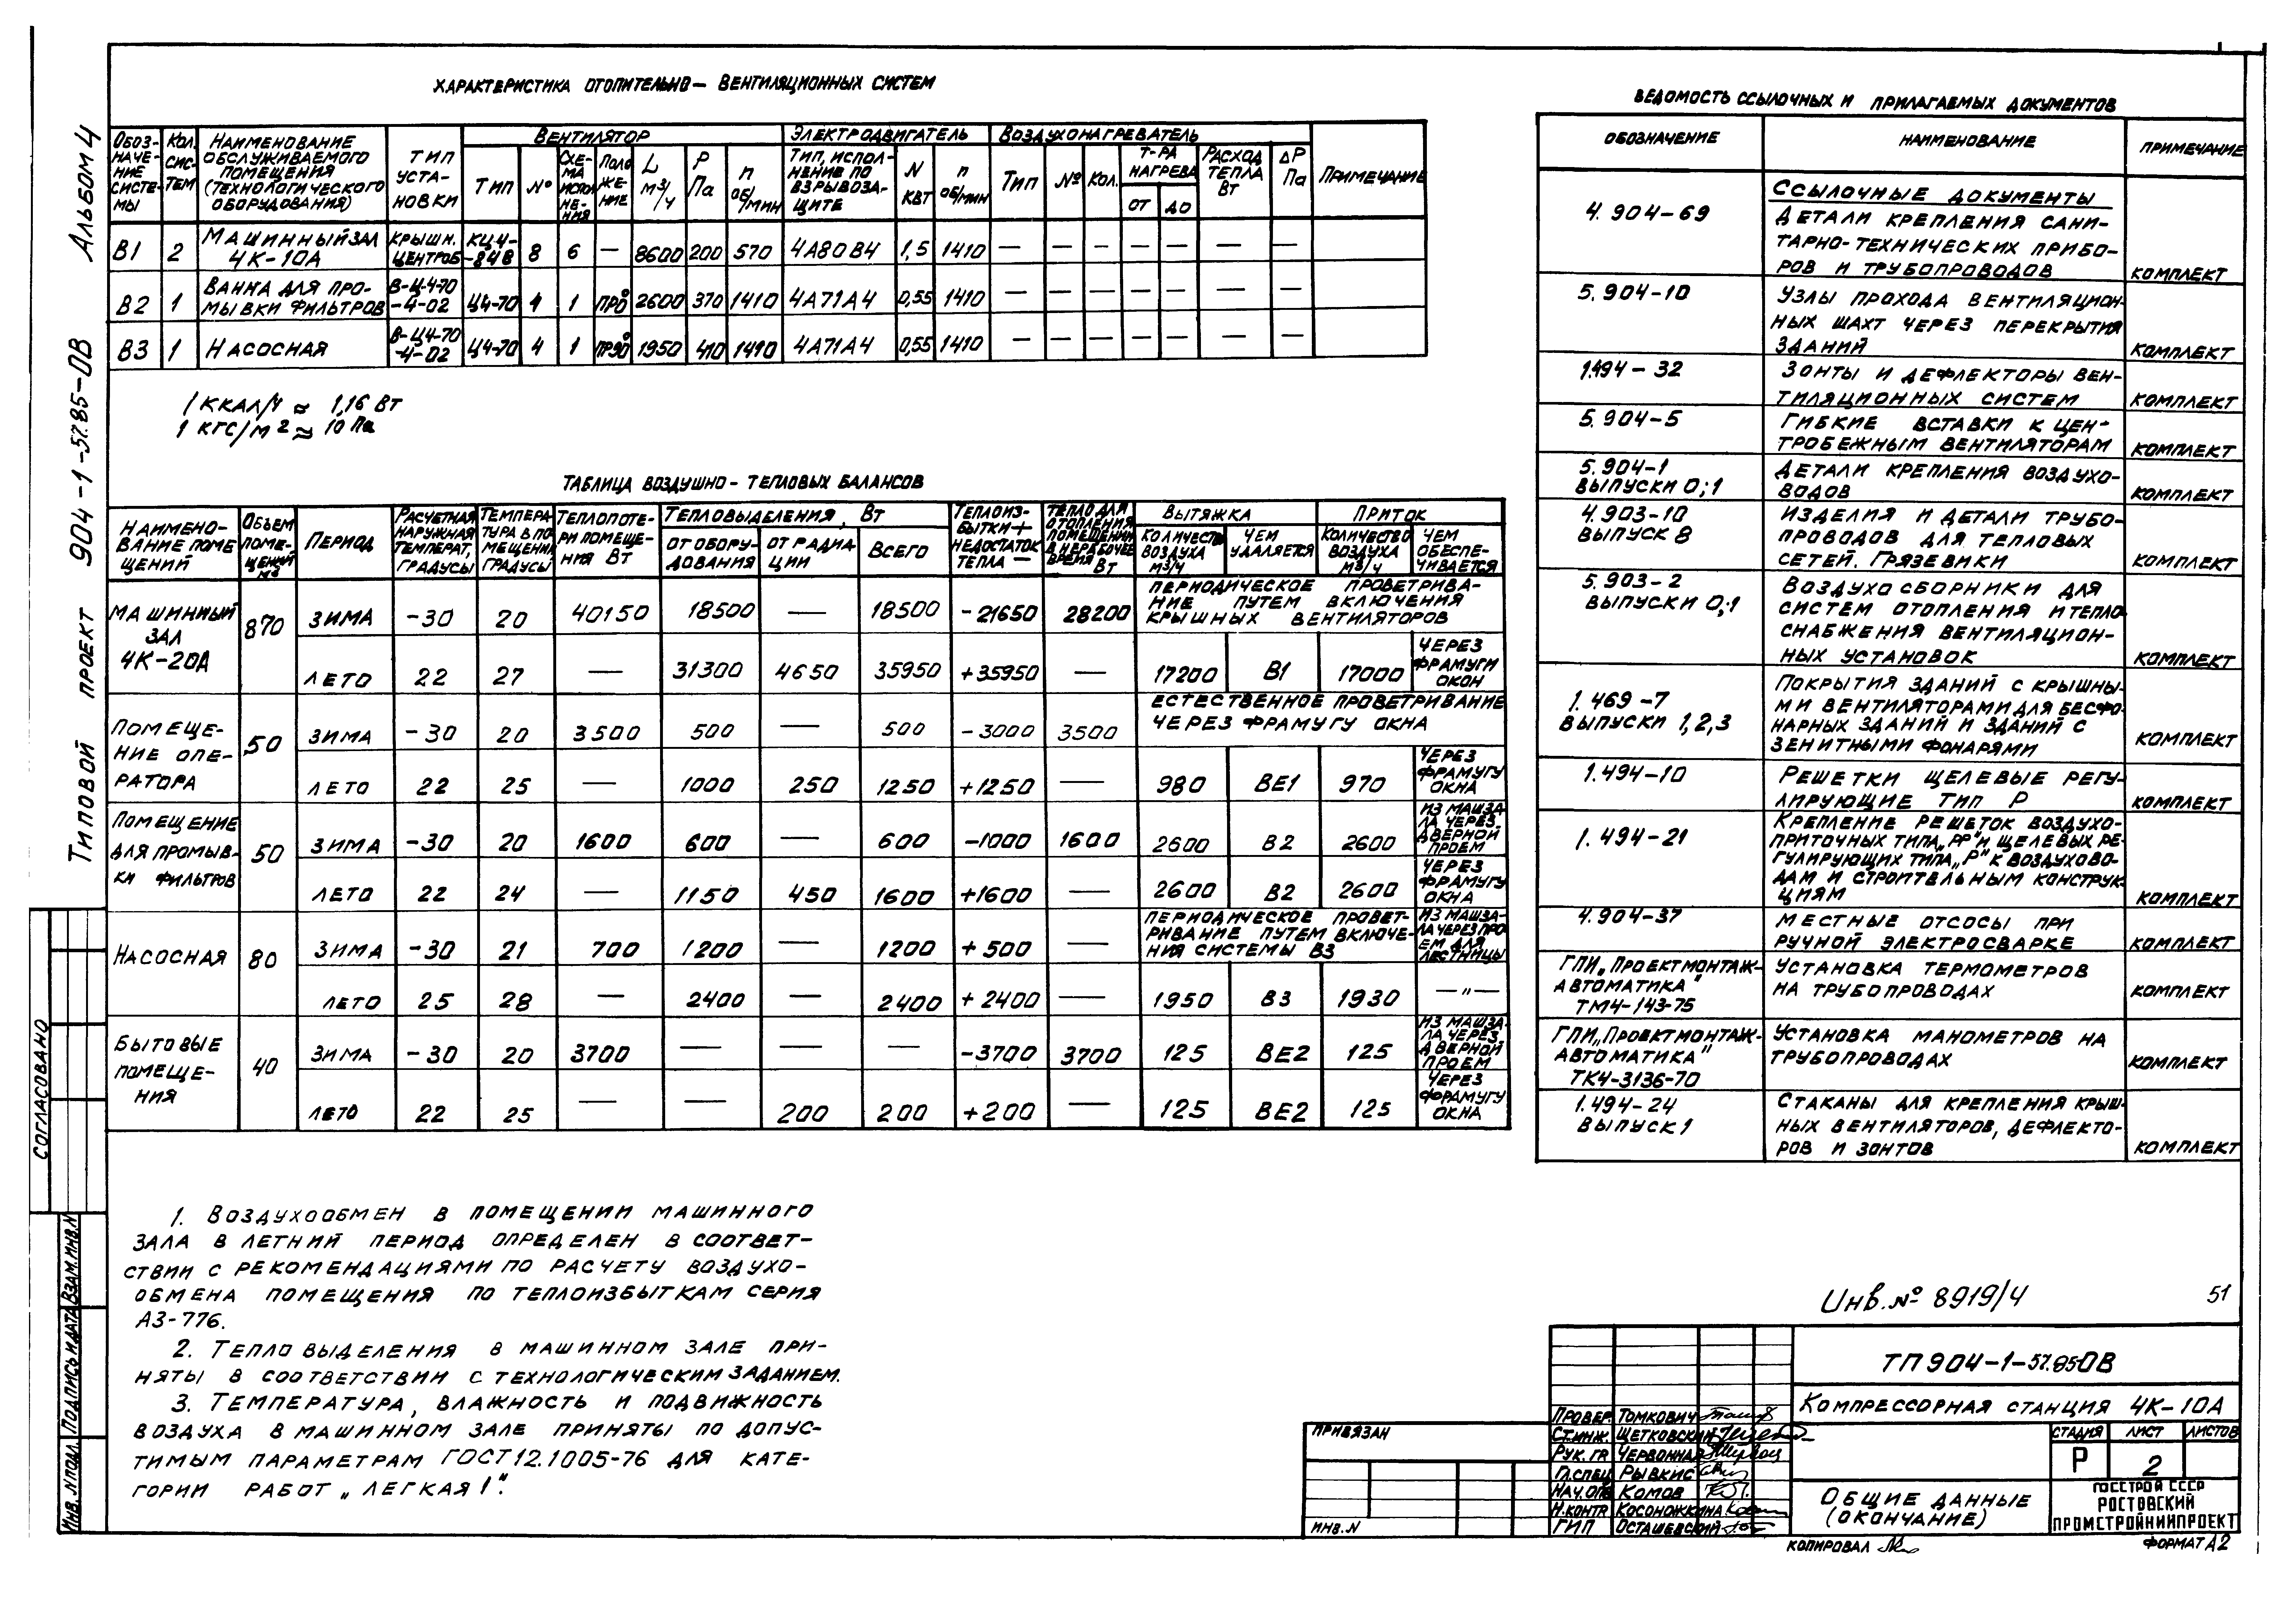 ХАРАКТЕРИСТИКА ОТОПИТЕЛЬНО – ВЕНТИЛЯЦИОННЫХ СИСТЕМ
ОБОЗ-НАЧЕ-НИЕ СИСТЕ-МЫ | КОЛ. СИС-ТЕМ | НАИМЕНОВАНИЕ ОБСЛУЖИВАЕМОГО ПОМЕЩЕНИЯ (ТЕХНОЛОГИЧЕСКОГО ОБОРУДОВАНИЯ) | ТИП УСТА-НОВКИ | ВЕНТИЛЯТОР | ЭЛЕКТРОДВИГАТЕЛЬ | ВОЗДУХОНАГРЕВАТЕЛЬ | ПРИМЕЧАНИЕ
ТИП | № | СХЕ-МА ИСПОЛ НЕ-НИЯ | ПОЛО ЖЕ-НИЕ | L м³/ч | Р Па | n об/мин | ТИП, ИСПОЛ-НЕНИЕ ПО ВЗРЫВОЗА-ЩИТЕ | N КВТ | n об/мин | ТИП | № | КОЛ. | Т-РА НАГРЕВА ОТ ДО | РАСХОД ТЕПЛА Вт | ΔР Па
В1 | 2 | МАШИННЫЙ ЗАЛ 4К-10А | КРЫШН. ЦЕНТРОБ | КЦ4-84В | 8 | 6 | — | 8600 | 200 | 570 | 4А80В4 | 1,5 | 1410 | — | — | — | — | — | — | —
В2 | 1 | ВАННА ДЛЯ ПРО-МЫВКИ ФИЛЬТРОВ | В-Ц4-70-4-02 | Ц4-70 | 4 | 1 | ПР0° | 2600 | 370 | 1410 | 4А71А4 | 0,55 | 1410 | — | — | — | — | — | — | —
В3 | 1 | НАСОСНАЯ | В-Ц4-70-4-02 | Ц4-70 | 4 | 1 | ПР90° | 1950 | 410 | 1410 | 4А71А4 | 0,55 | 1410 | — | — | — | — | — | — | —
1 ККАЛ/Ч ≈ 1,16 Вт
1 КГС/М² ≈ 10 Па
ТАБЛИЦА ВОЗДУШНО – ТЕПЛОВЫХ БАЛАНСОВ
НАИМЕНО-ВАНИЕ ПОМЕ ЩЕНИЙ | ОБЪЕМ ПОМЕ-ЩЕНИЙ м³ | ПЕРИОД | РАСЧЕТНАЯ НАРУЖНАЯ ТЕМПЕРАТ, ГРАДУСЫ | ТЕМПЕРА-ТУРА В ПО-МЕЩЕНИИ ГРАДУСЫ | ТЕПЛОПОТЕ-РИ ПОМЕЩЕ-НИЯ ВТ | ТЕПЛОВЫДЕЛЕНИЯ, Вт | ТЕПЛОИЗ-БЫТКИ+ НЕДОСТАТОК ТЕПЛА — | ТЕПЛО ДЛЯ ОТОПЛЕНИЯ ПОМЕЩЕНИЯ В НЕРАБОЧЕЕ ВРЕМЯ Вт | ВЫТЯЖКА | ПРИТОК
ОТ ОБОРУ-ДОВАНИЯ | ОТ РАДИА-ЦИИ | ВСЕГО | КОЛИЧЕСТВО ВОЗДУХА М³/Ч | ЧЕМ УДАЛЯЕТСЯ | КОЛИЧЕСТВО ВОЗДУХА М³/Ч | ЧЕМ ОБЕСПЕ-ЧИВАЕТСЯ
МАШИННЫЙ ЗАЛ 4К-20А | 870 | ЗИМА | -30 | 20 | 40150 | 18500 | — | 18500 | -21650 | 28200 | ПЕРИОДИЧЕСКОЕ ПРОВЕТРИВА-НИЕ ПУТЕМ ВКЛЮЧЕНИЯ КРЫШНЫХ ВЕНТИЛЯТОРОВ
ЛЕТО | 22 | 27 | — | 31300 | 4650 | 35950 | +35950 | — | 17200 | В1 | 17000 | ЧЕРЕЗ ФРАМУГИ ОКОН
ПОМЕЩЕ-НИЕ ОПЕ-РАТОРА | 50 | ЗИМА | -30 | 20 | 3500 | 500 | — | 500 | -3000 | 3500 | ЕСТЕСТВЕННОЕ ПРОВЕТРИВАНИЕ ЧЕРЕЗ ФРАМУГУ ОКНА
ЛЕТО | 22 | 25 | — | 1000 | 250 | 1250 | +1250 | — | 980 | ВЕ1 | 970 | ЧЕРЕЗ ФРАМУГУ ОКНА
ПОМЕЩЕНИЕ ДЛЯ ПРОМЫВ-КИ ФИЛЬТРОВ | 50 | ЗИМА | -30 | 20 | 1600 | 600 | — | 600 | -1000 | 1600 | 2600 | В2 | 2600 | ИЗ МАШЗА ЛА ЧЕРЕЗ ДВЕРНОЙ ПРОЕМ
ЛЕТО | 22 | 24 | — | 1150 | 450 | 1600 | +1600 | — | 2600 | В2 | 2600 | ЧЕРЕЗ ФРАМУГУ ОКНА
НАСОСНАЯ | 80 | ЗИМА | -30 | 21 | 700 | 1200 | — | 1200 | +500 | — | ПЕРИОДИЧЕСКОЕ ПРОВЕТ-РИВАНИЕ ПУТЕМ ВКЛЮЧЕ-НИЯ СИСТЕМЫ В3 | ИЗ МАШЗА-ЛА ЧЕРЕЗ ПРО-ЕМ ДЛЯ ЛЕСТНИЦЫ
ЛЕТО | 25 | 28 | — | 2400 | — | 2400 | +2400 | — | 1950 | В3 | 1930 | —"—
БЫТОВЫЕ ПОМЕЩЕ-НИЯ | 40 | ЗИМА | -30 | 20 | 3700 | — | — | — | -3700 | 3700 | 125 | ВЕ2 | 125 | ИЗ МАШЗА-ЛА ЧЕРЕЗ ДВЕРНОЙ ПРОЕМ
ЛЕТО | 22 | 25 | — | — | 200 | 200 | +200 | — | 125 | ВЕ2 | 125 | ЧЕРЕЗ ФРАМУГУ ОКНА
1. ВОЗДУХООБМЕН В ПОМЕЩЕНИИ МАШИННОГО
ЗАЛА В ЛЕТНИЙ ПЕРИОД ОПРЕДЕЛЕН В СООТВЕТ-
СТВИИ С РЕКОМЕНДАЦИЯМИ ПО РАСЧЕТУ ВОЗДУХО-
ОБМЕНА ПОМЕЩЕНИЯ ПО ТЕПЛОИЗБЫТКАМ СЕРИЯ
АЗ-776.
2. ТЕПЛОВЫДЕЛЕНИЯ В МАШИННОМ ЗАЛЕ ПРИ-
НЯТЫ В СООТВЕТСТВИИ С ТЕХНОЛОГИЧЕСКИМ ЗАДАНИЕМ.
3. ТЕМПЕРАТУРА, ВЛАЖНОСТЬ И ПОДВИЖНОСТЬ
ВОЗДУХА В МАШИННОМ ЗАЛЕ ПРИНЯТЫ ПО ДОПУС-
ТИМЫМ ПАРАМЕТРАМ ГОСТ 12.1005-76 ДЛЯ КАТЕ-
ГОРИИ РАБОТ „ЛЕГКАЯ I".
ВЕДОМОСТЬ ССЫЛОЧНЫХ И ПРИЛАГАЕМЫХ ДОКУМЕНТОВ
ОБОЗНАЧЕНИЕ | НАИМЕНОВАНИЕ | ПРИМЕЧАНИЕ
ССЫЛОЧНЫЕ ДОКУМЕНТЫ
4.904-69 | ДЕТАЛИ КРЕПЛЕНИЯ САНИ-ТАРНО-ТЕХНИЧЕСКИХ ПРИБО-РОВ И ТРУБОПРОВОДОВ | КОМПЛЕКТ
5.904-10 | УЗЛЫ ПРОХОДА ВЕНТИЛЯЦИОН-НЫХ ШАХТ ЧЕРЕЗ ПЕРЕКРЫТИЯ ЗДАНИЙ | КОМПЛЕКТ
1.494-32 | ЗОНТЫ И ДЕФЛЕКТОРЫ ВЕН-ТИЛЯЦИОННЫХ СИСТЕМ | КОМПЛЕКТ
5.904-5 | ГИБКИЕ ВСТАВКИ К ЦЕН-ТРОБЕЖНЫМ ВЕНТИЛЯТОРАМ | КОМПЛЕКТ
5.904-1 ВЫПУСКИ 0;1 | ДЕТАЛИ КРЕПЛЕНИЯ ВОЗДУХО-ВОДОВ | КОМПЛЕКТ
4.903-10 ВЫПУСК 8 | ИЗДЕЛИЯ И ДЕТАЛИ ТРУБО-ПРОВОДОВ ДЛЯ ТЕПЛОВЫХ СЕТЕЙ. ГРЯЗЕВИКИ | КОМПЛЕКТ
5.903-2 ВЫПУСКИ 0;1 | ВОЗДУХОСБОРНИКИ ДЛЯ СИСТЕМ ОТОПЛЕНИЯ И ТЕПЛО-СНАБЖЕНИЯ ВЕНТИЛЯЦИОН-НЫХ УСТАНОВОК | КОМПЛЕКТ
1.469-7 ВЫПУСКИ 1,2,3 | ПОКРЫТИЯ ЗДАНИЙ С КРЫШНЫ-МИ ВЕНТИЛЯТОРАМИ ДЛЯ БЕСФО-НАРНЫХ ЗДАНИЙ И ЗДАНИЙ С ЗЕНИТНЫМИ ФОНАРЯМИ | КОМПЛЕКТ
1.494-10 | РЕШЕТКИ ЩЕЛЕВЫЕ РЕГУ-ЛИРУЮЩИЕ ТИП Р | КОМПЛЕКТ
1.494-21 | КРЕПЛЕНИЕ РЕШЕТОК ВОЗДУХО-ПРИТОЧНЫХ ТИПА „РР" И ЩЕЛЕВЫХ РЕ-ГУЛИРУЮЩИХ ТИПА „Р" К ВОЗДУХОВО-ДАМ И СТРОИТЕЛЬНЫМ КОНСТРУК-ЦИЯМ | КОМПЛЕКТ
4.904-37 | МЕСТНЫЕ ОТСОСЫ ПРИ РУЧНОЙ ЭЛЕКТРОСВАРКЕ | КОМПЛЕКТ
ГПИ „ПРОЕКТМОНТАЖ-АВТОМАТИКА" ТМ4-143-75 | УСТАНОВКА ТЕРМОМЕТРОВ НА ТРУБОПРОВОДАХ | КОМПЛЕКТ
ГПИ „ПРОЕКТМОНТАЖ-АВТОМАТИКА" ТК4-3136-70 | УСТАНОВКА МАНОМЕТРОВ НА ТРУБОПРОВОДАХ | КОМПЛЕКТ
1.494-24 ВЫПУСК 1 | СТАКАНЫ ДЛЯ КРЕПЛЕНИЯ КРЫШ-НЫХ ВЕНТИЛЯТОРОВ, ДЕФЛЕКТО-РОВ И ЗОНТОВ | КОМПЛЕКТ
Инв. № 8919/4
51
ТП 904-1-57.85 ОВ
КОМПРЕССОРНАЯ СТАНЦИЯ 4К-10А
ПРОВЕР. ТОМКОВИЧ
СТ.ИНЖ. ЩЕТКОВСКИЙ
РУК. ГР ЧЕРВОННАЯ
ГЛ.СПЕЦ РЫВКИС
НАЧ.ОТД КОМОВ
Н.КОНТР КОСОНОЖКИНА
ГИП ОСТАШЕВСКИЙ
СТАДИЯ ЛИСТ ЛИСТОВ
Р 2
ОБЩИЕ ДАННЫЕ
(ОКОНЧАНИЕ)
ГОССТРОЙ СССР
РОСТОВСКИЙ
ПРОМСТРОЙНИИПРОЕКТ
КОПИРОВАЛ
ФОРМАТ А2
ПРИВЯЗАН
ИНВ. N
ТИПОВОЙ ПРОЕКТ 904-1-57.85-ОВ АЛЬБОМ 4
СОГЛАСОВАНО
ИНВ. N ПОДЛ. ПОДПИСЬ И ДАТА ВЗАМ. ИНВ. N